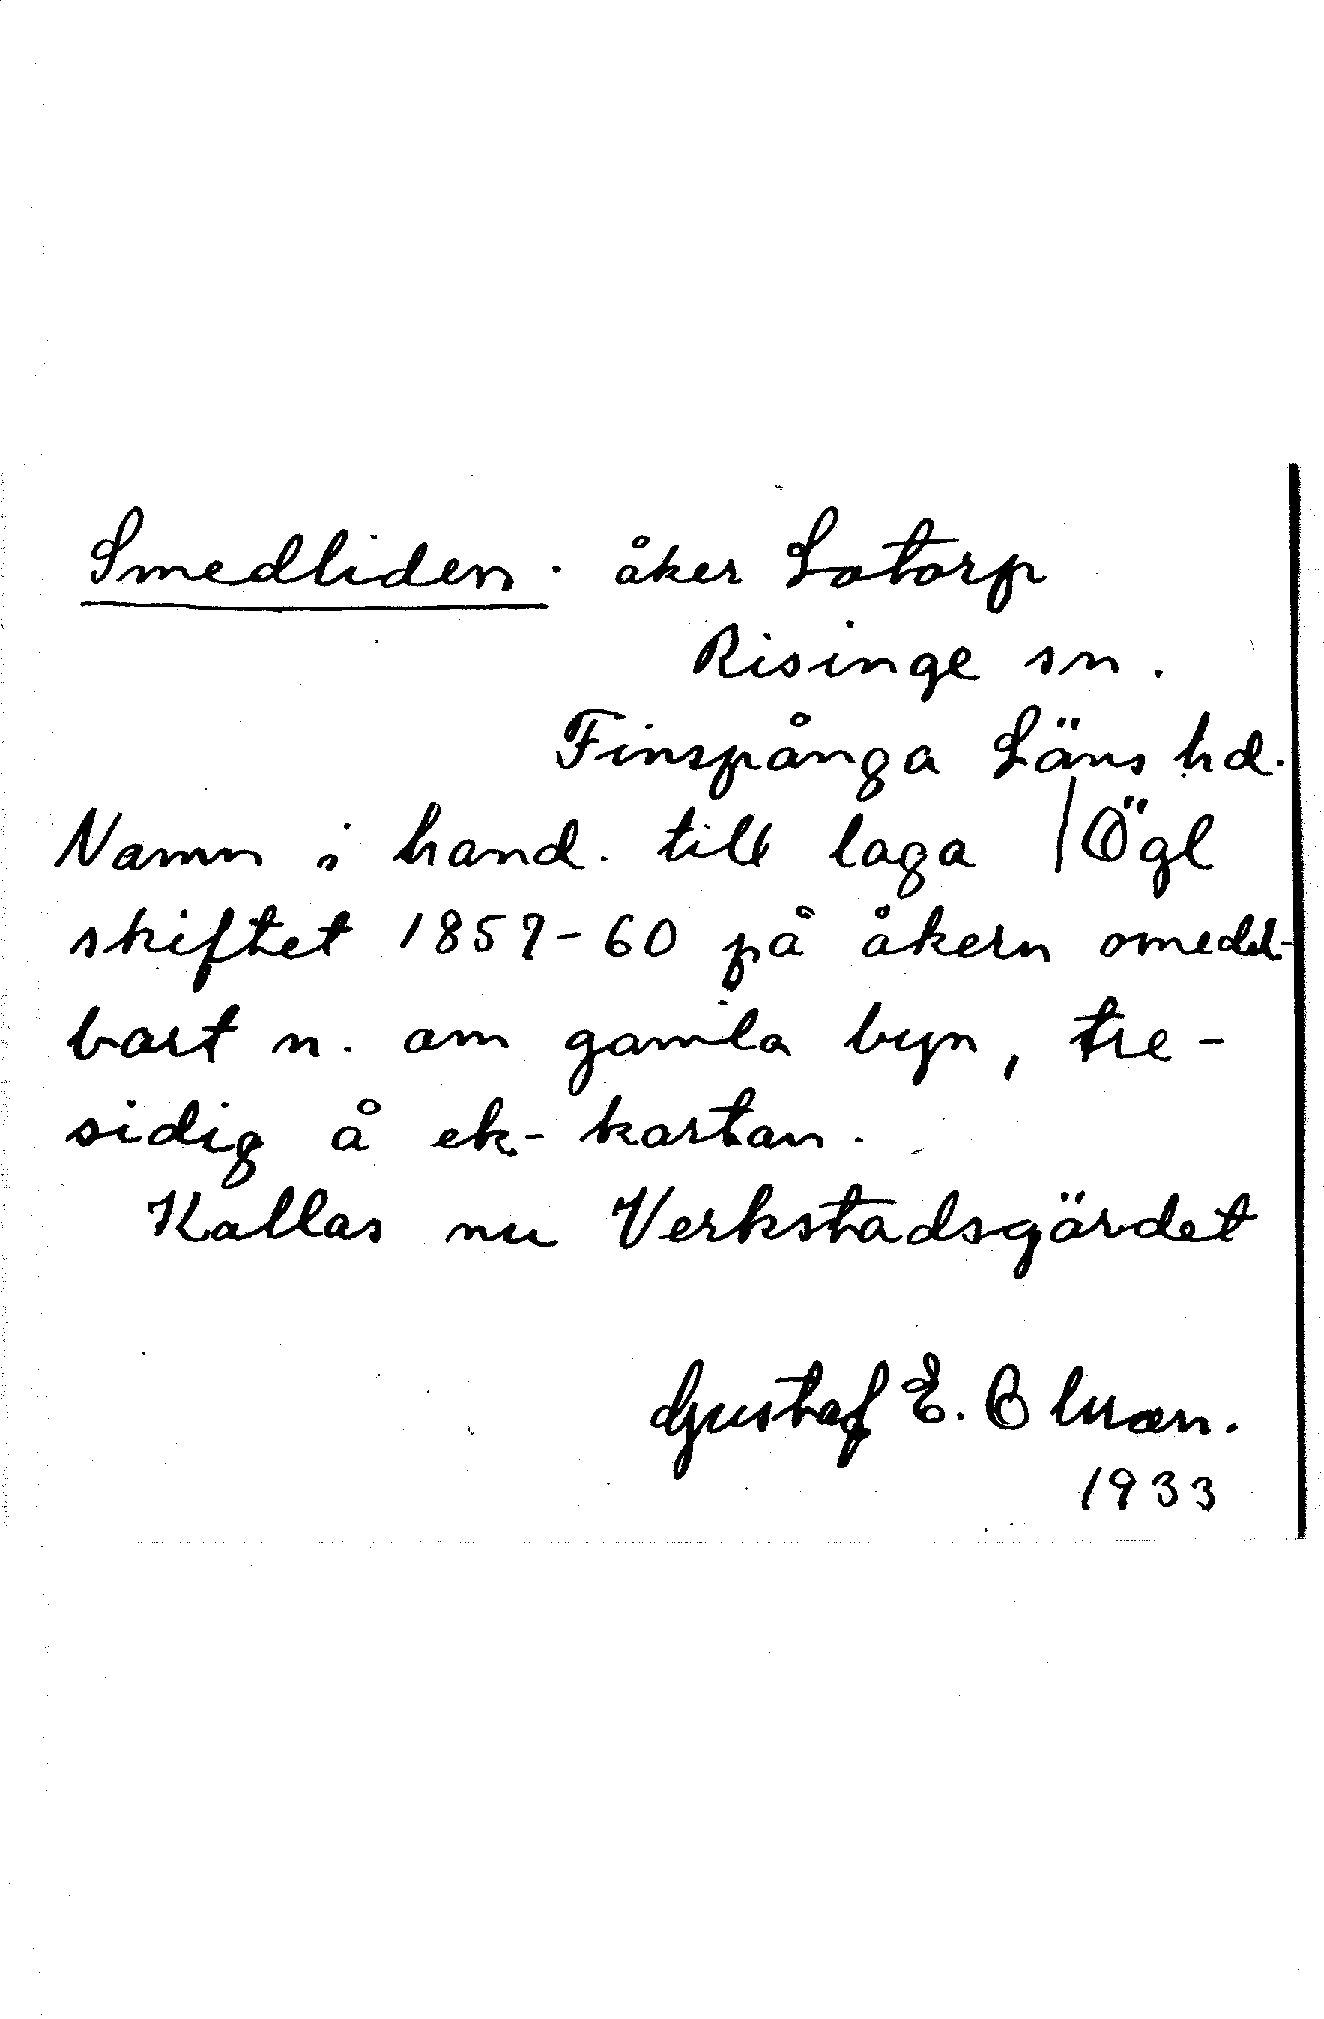 Smedliden . åker Lotorp
Risinge sn .
Finspånga Läns hd.
Namn i hand. till laga / Ögl
skiftet 1859-60 på åkern omedel-
bart n. om gamla byn, tre-
sidig å ek-kartan.
Kallas nu Verkstadsgärdet
Gustaf E.
1933